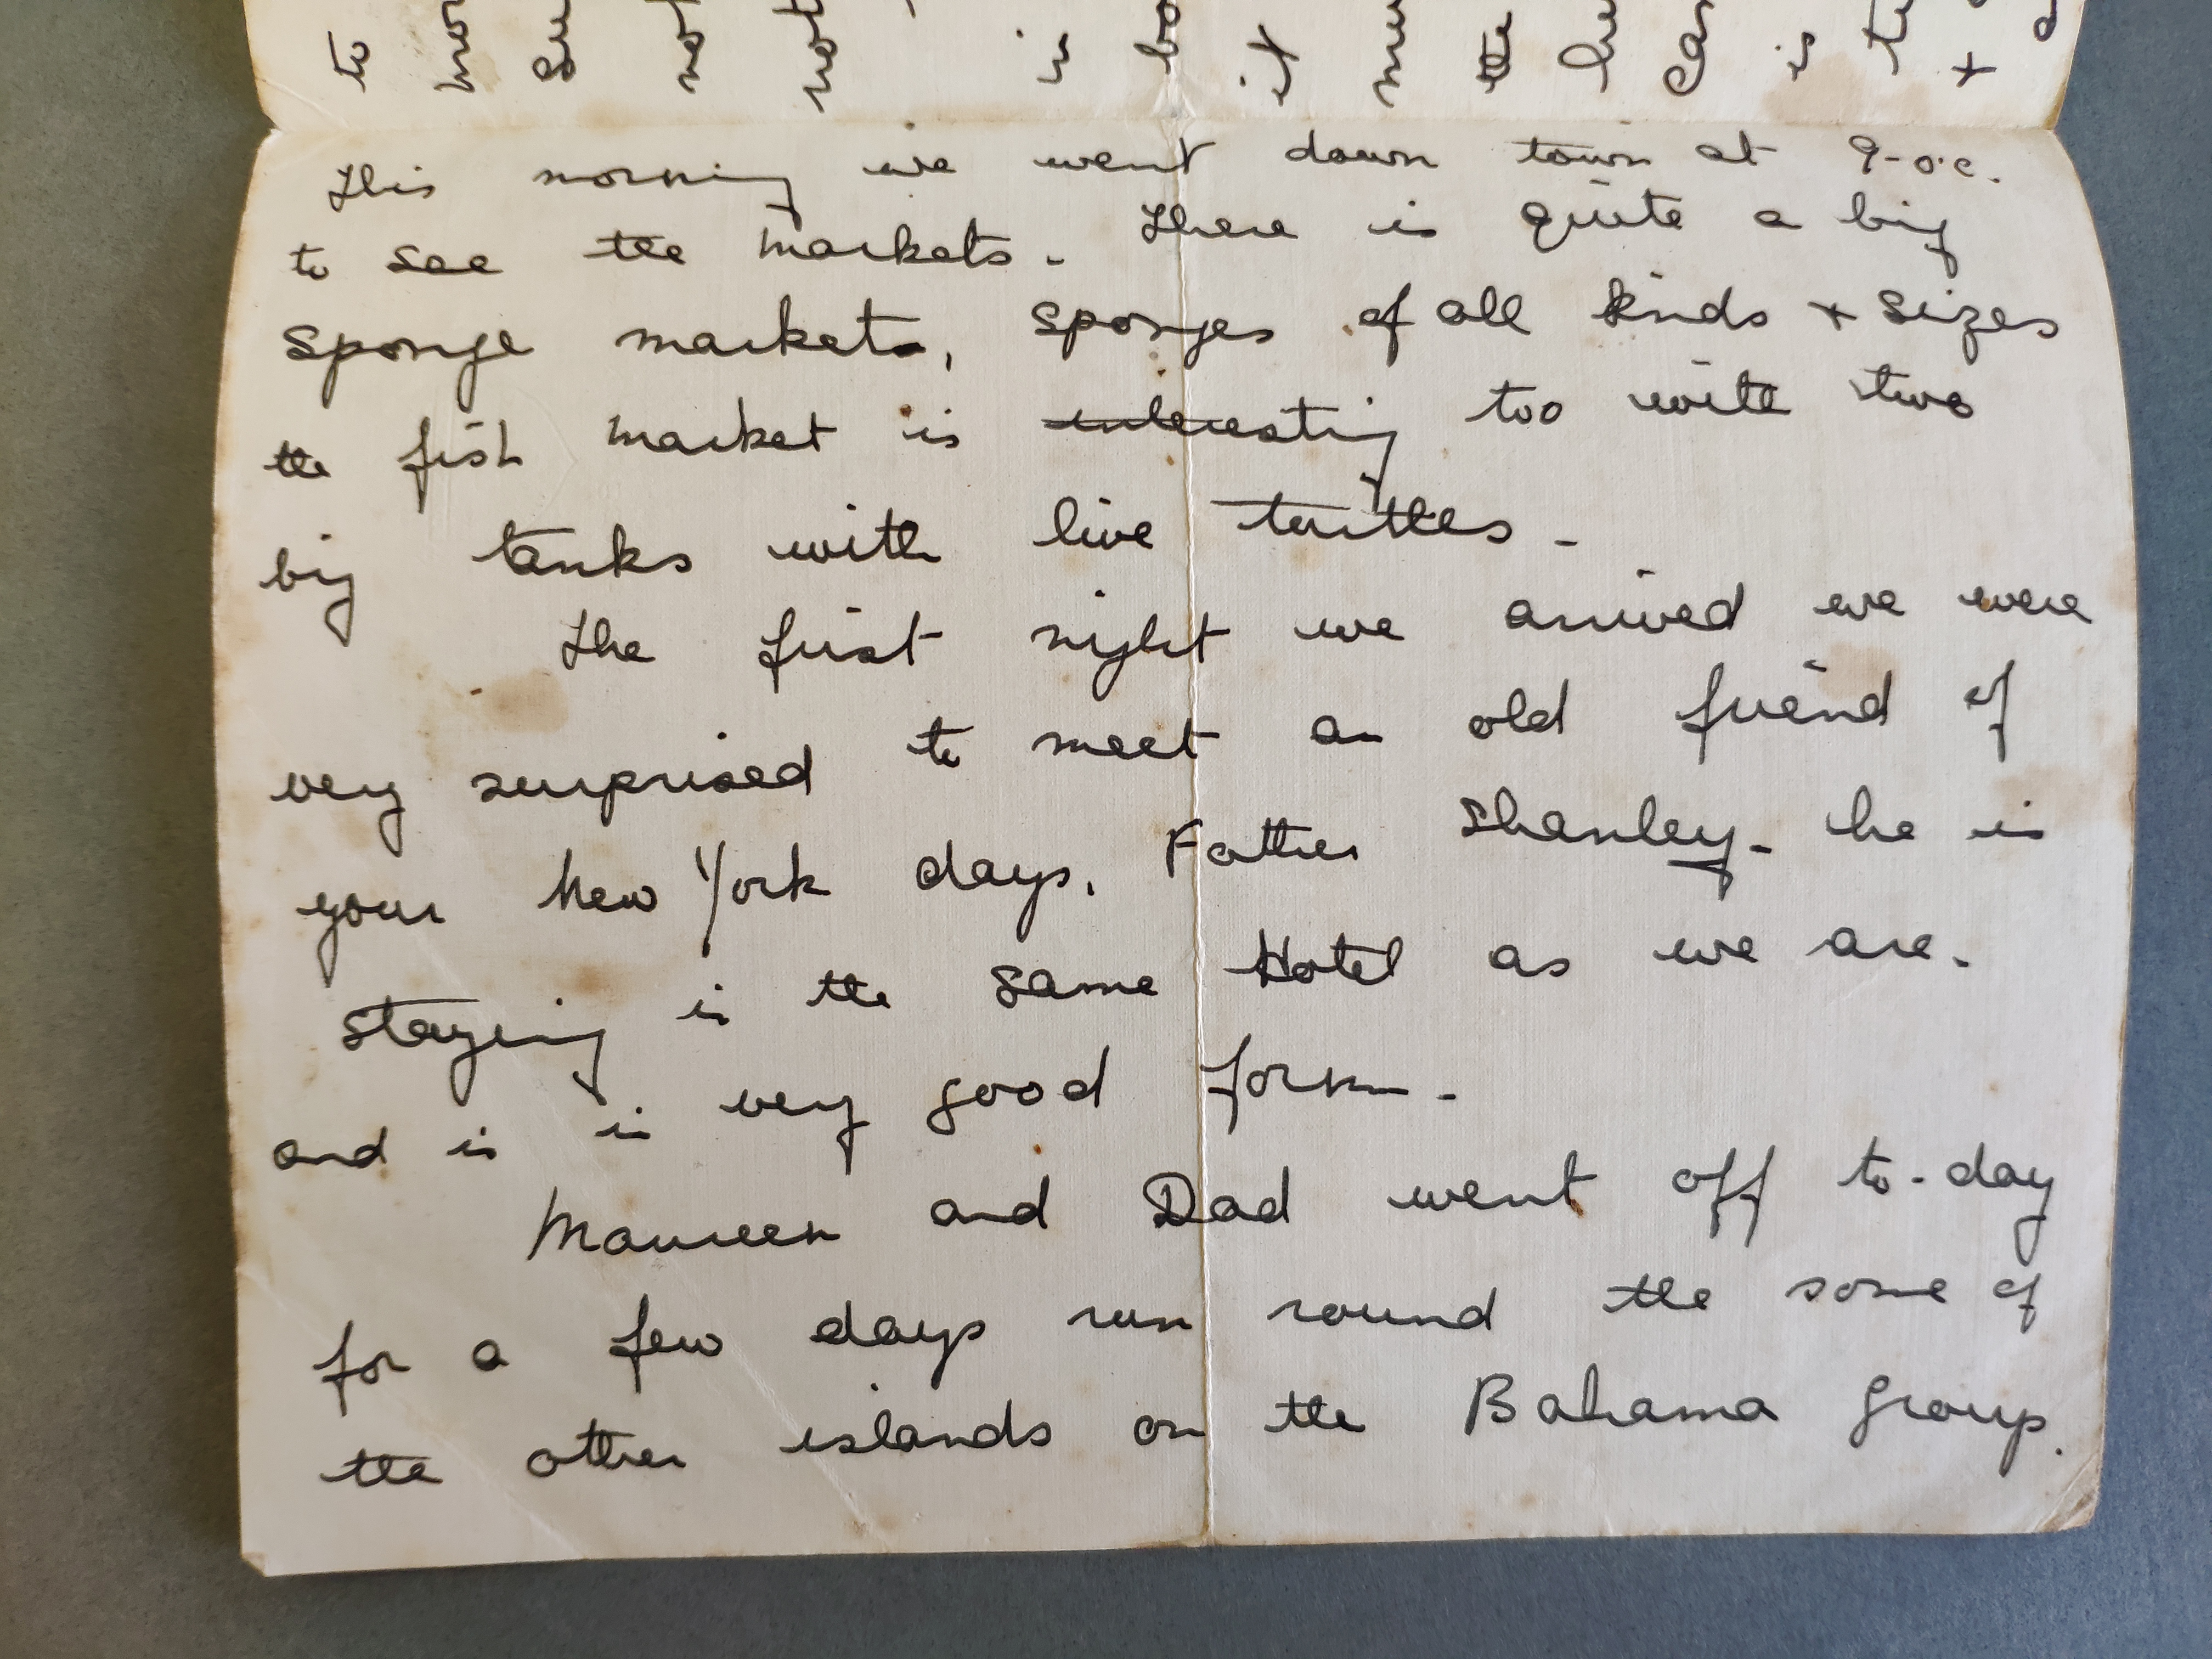 This morning we went down town at 9-o.c.
to see the markets. There is quite a big
sponge market, sponges of all kinds + sizes
the fish market is interesting too with two
big tanks with live turtles -
The first night we arrived we were
very surprised to meet an old friend of
your New York days, Father Shanley - he is
staying in the same Hotel as we are.
and is in very good form -
Maureen and Dad went off to-day
for a few days run round the some of
the other islands on the Bahama group.